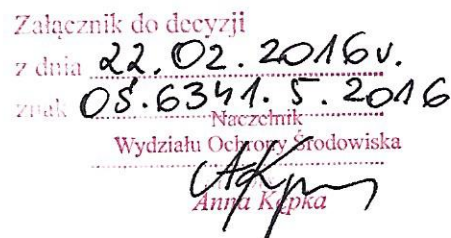 Załącznik do decyzji
z dnia 22.02.2016r.
znak OŚ.6341.5.2016
Naczelnik
Wydziału Ochrony Środowiska
Anna Kępka